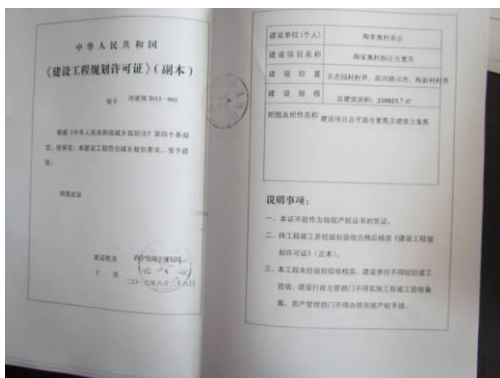 中华人民共和国
《建设工程规划许可证》（副本）
编号
根据《中华人民共和国城乡规划法》第四十条规
定，经审定，本建设工程符合城乡规划要求，准予建
设。
特发此证
发证机关
日期
二〇一三年六月二十八日
建设单位(个人)
陶家寨村委会
建设项目名称
陶家寨村拆迁安置房
建设位置
建设规模
总建筑面积：238829.7㎡
附图及附件名称
建设项目总平面布置图及建筑方案图
说明事项：
一、本证不能作为领取产权证书的凭证。
二、待工程竣工并经规划验收合格后核发《建设工程规
划许可证》（正本）。
三、本工程未经规划验收核实，建设单位不得组织竣工
验收，建设行政主管部门不得实施工程竣工验收备
案，房产管理部门不得办理房屋产权手续。